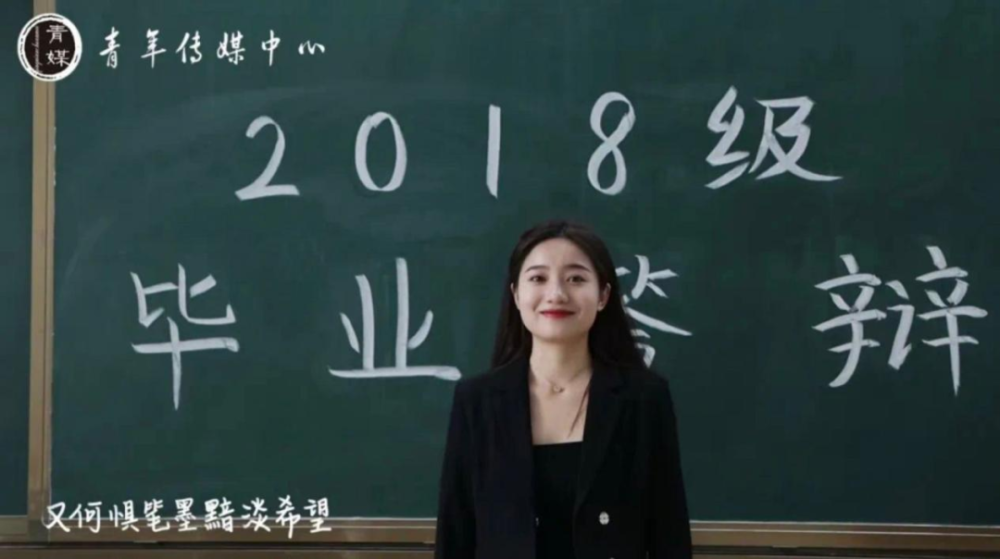 青媒
青年传媒中心
2018级
毕业答辩
又何惧笔墨黯淡希望